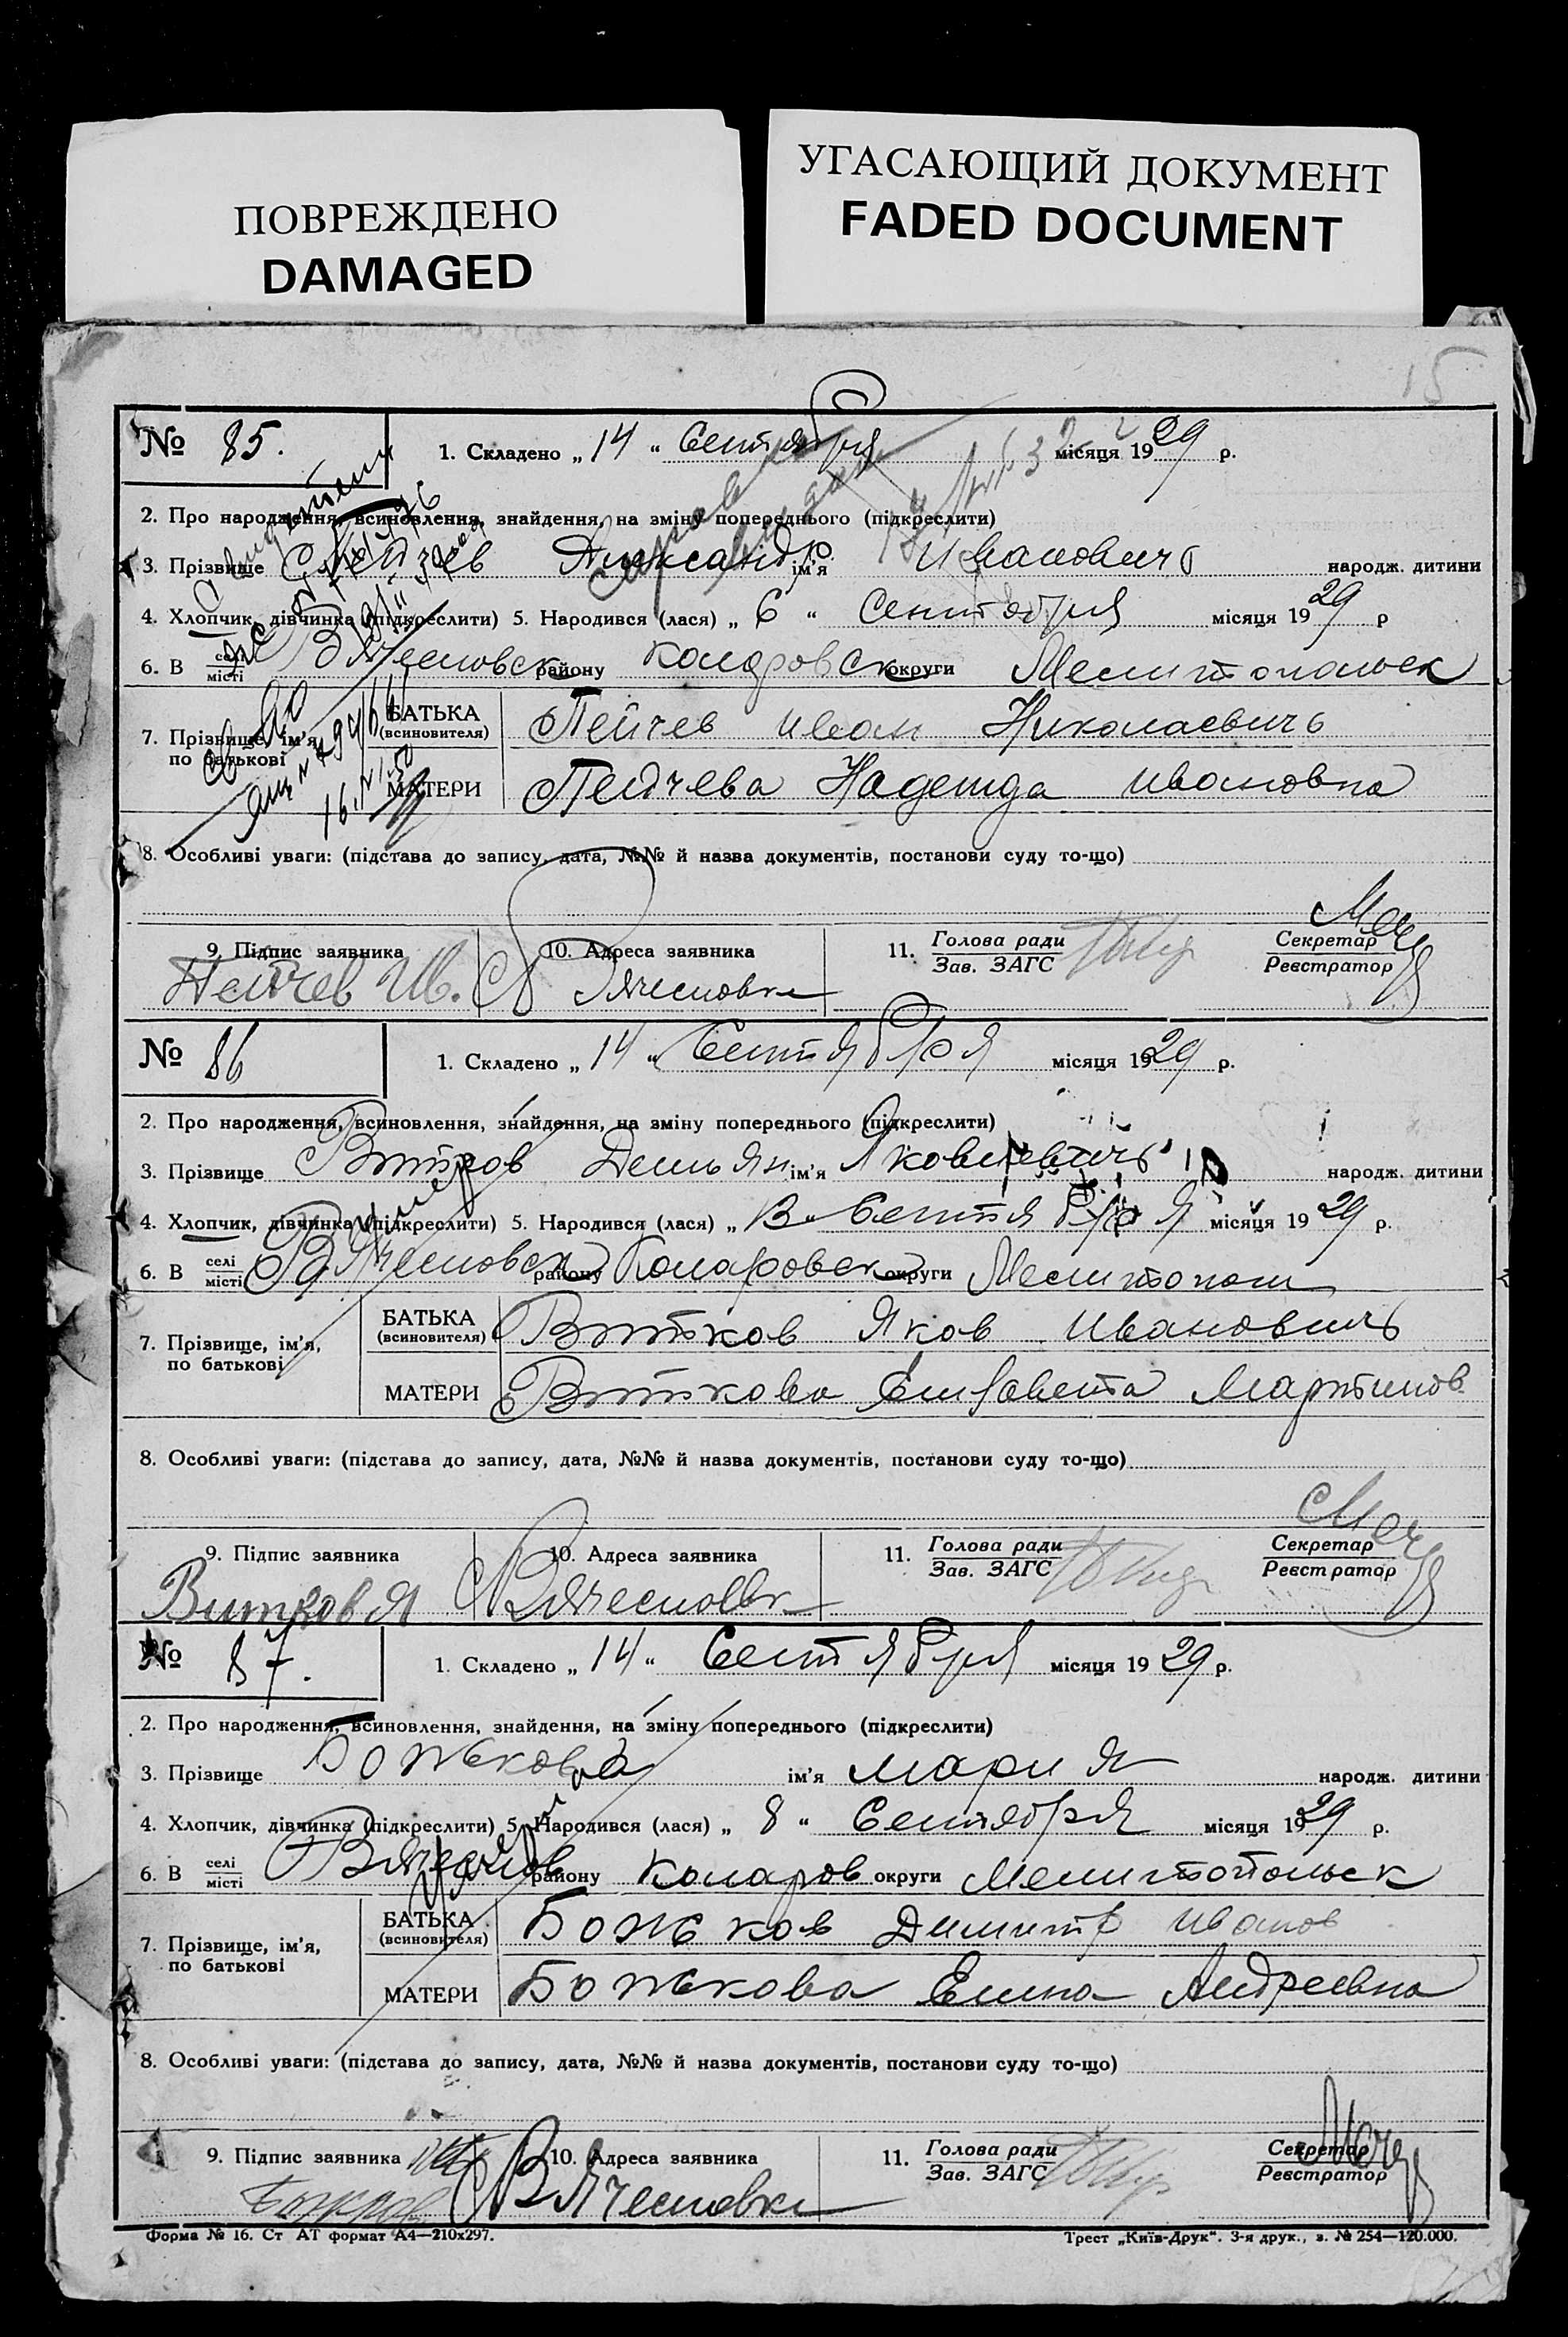 ПОВРЕЖДЕНО
DAMAGED
УГАСАЮЩИЙ ДОКУМЕНТ
FADED DOCUMENT
15
№ 85. 1. Складено „ 14 “ Сентября місяця 1929 р.
2. Про народження, всиновлення, знайдення, на зміну попереднього (підкреслити)
3. Прізвище Пейчев Александр ім'я Ивановичъ народж. дитини
4. Хлопчик, дівчинка (підкреслити) 5. Народився (лася) „ 6 “ Сентября місяця 1929 р
6. В селі/місті Вячесловск району Коларовск округи Мелитопольск
7. Прізвище, ім'я, по батькові
БАТЬКА (всиновителя) Пейчев Иван Николаевичъ
МАТЕРИ Пейчева Надежда Ивановна
8. Особливі уваги: (підстава до запису, дата, №№ й назва документів, постанови суду то-що)
9. Підпис заявника 10. Адреса заявника 11. Голова ради/Зав. ЗАГС Секретар/Реєстратор
Пейчев Ив. С Вячесловка
№ 86 1. Складено „ 14 “ Сентября місяця 1929 р.
2. Про народження, всиновлення, знайдення, на зміну попереднього (підкреслити)
3. Прізвище Демьян ім'я народж. дитини
4. Хлопчик, дівчинка (підкреслити) 5. Народився (лася) „ Сентября місяця 1929 р.
6. В селі/місті Вячесловск району Коларовск округи Мелитопол
7. Прізвище, ім'я, по батькові
БАТЬКА (всиновителя) Витков Яков Ивановичъ
МАТЕРИ Виткова Елизавета Мартинов
8. Особливі уваги: (підстава до запису, дата, №№ й назва документів, постанови суду то-що)
9. Підпис заявника 10. Адреса заявника 11. Голова ради/Зав. ЗАГС Секретар/Реєстратор
Витков Я С Вячесловк
№ 87. 1. Складено „ 14 “ Сентября місяця 1929 р.
2. Про народження, всиновлення, знайдення, на зміну попереднього (підкреслити)
3. Прізвище Божкова ім'я Мария народж. дитини
4. Хлопчик, дівчинка (підкреслити) 5. Народився (лася) „ 8 “ Сентября місяця 1929 р.
6. В селі/місті Вячеслов району Коларов округи Мелитопольск
7. Прізвище, ім'я, по батькові
БАТЬКА (всиновителя) Божков Димитр Иванов
МАТЕРИ Божкова Елена Андреевна
8. Особливі уваги: (підстава до запису, дата, №№ й назва документів, постанови суду то-що)
9. Підпис заявника 10. Адреса заявника 11. Голова ради/Зав. ЗАГС Секретар/Реєстратор
С Вячесловка
Форма № 16. Ст АТ формат А4—210х297. Трест „Київ-Друк“. 3-я друк., з. № 254—120.000.